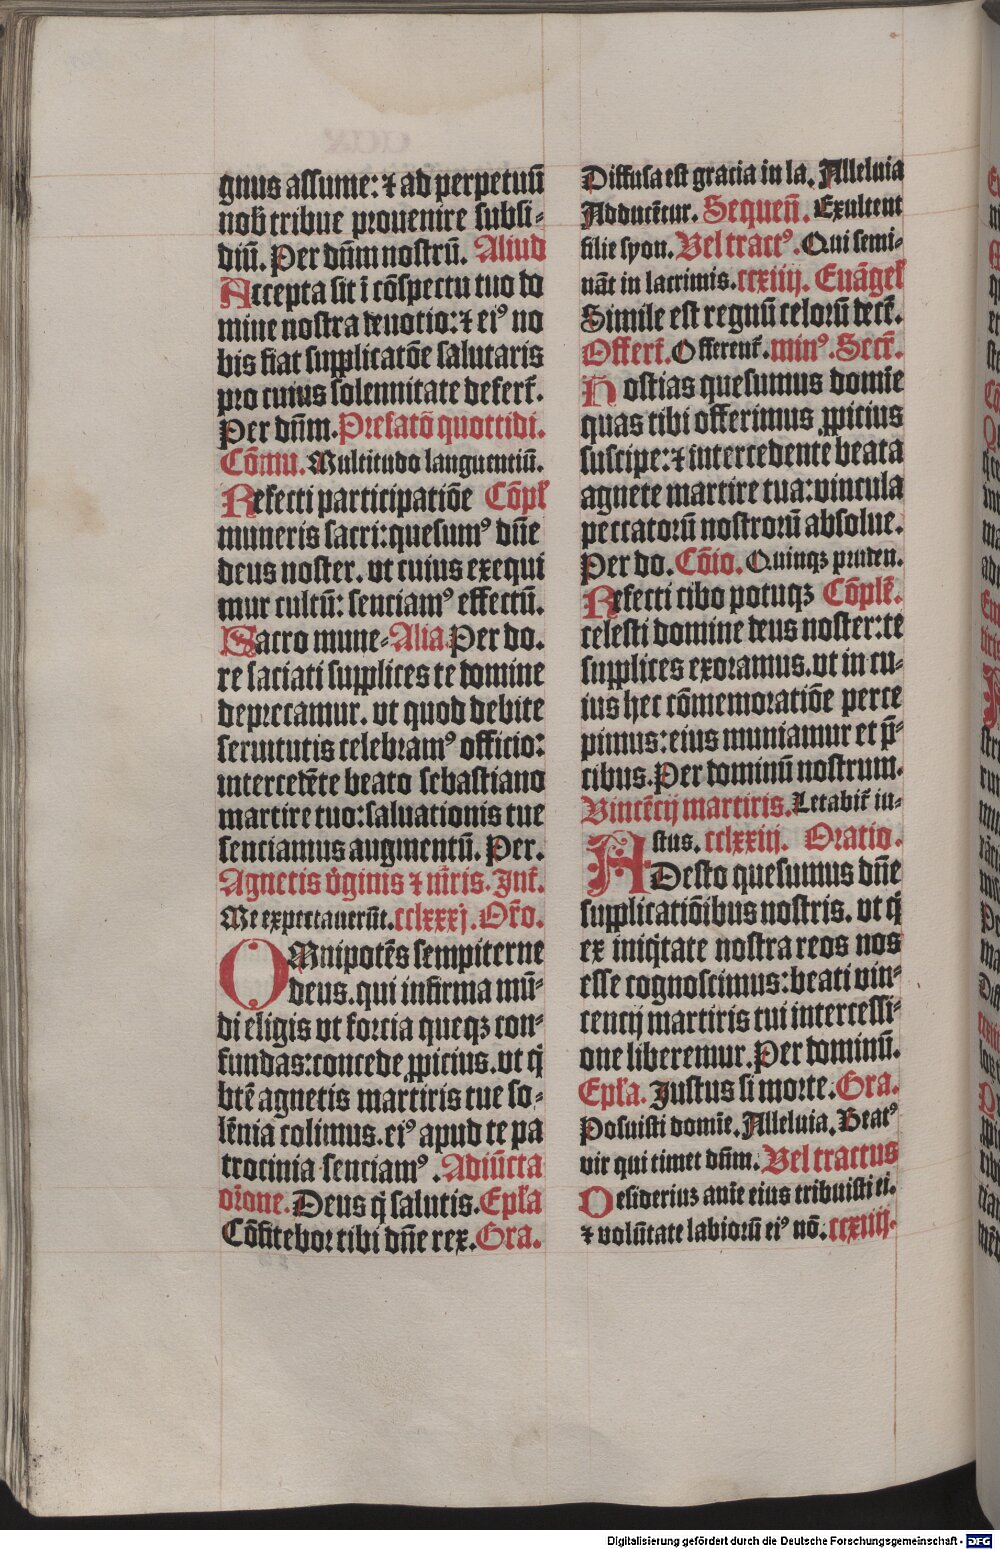 gnus assume: ⁊ ad perpetuū
nob̄ tribue prouenire subsi⸗
diū. Per dn̄m nostrū. Aliud
Accepta sit ī cōspectu tuo do
mine nostra deuotio: ⁊ eiꝰ no
bis fiat supplicatōe salutaris
pro cuius solennitate defert̄.
Per dn̄m. Prefatō quottidi.
Cōmu. Multitudo languentiū.
Refecti participatiōe Cōpl̄
muneris sacri: quesumꝰ dn̄e
deus noster. vt cuius exequi
mur cultū: senciamꝰ effectū.
Sacro mune⸗ Alia. Per do.
re saciati supplices te domine
deprecamur. vt quod debite
seruitutis celebramꝰ officio:
intercedēte beato sebastiano
martire tuo: saluationis tue
senciamus augmentū. Per.
Agnetis v̄ginis ⁊ m̄ris. Int̄.
Me expectauerūt. cclxxxj. Or̄o.
OMnipotēs sempiterne
deus. qui infirma mū⸗
di eligis vt forcia queqꝫ con⸗
fundas: concede ꝓpicius. vt q̄
btē agnetis martiris tue so⸗
lēnia colimus. eiꝰ apud te pa
trocinia senciamꝰ. Adiūcta
or̄one. Deus q̄ salutis. Epl̄a
Cōfitebor tibi dn̄e rex. Gra.
Diffusa est gracia in la. Alleluia
Adducētur. Sequen̄. Exultent
filie syon. Vel tractꝰ. Qui semi⸗
nāt in lacrimis. ccxiiij. Euāgel̄
Simile est regnū celorū decē.
Offert̄. Offerent̄. minꝰ. Secr̄.
Hostias quesumus domīe
quas tibi offerimus ꝓpicius
suscipe: ⁊ intercedente beata
agnete martire tua: vincula
peccatorū nostrorū absolue.
Per do. Cōio. Quinqꝫ pruden.
Refecti cibo potuqꝫ Cōplē.
celesti domine deus noster: te
supplices exoramus. vt in cu⸗
ius hec cōmemoratiōe perce
pimus: eius muniamur et p̄⸗
cibus. Per dominū nostrum.
Vincēcij martiris. Letabit̄ iu⸗
stus. cclxxiij. Oratio.
ADesto quesumus dn̄e
supplicatiōibus nostris. vt q̄
ex iniq̄tate nostra reos nos
esse cognoscimus: beati vin⸗
cencij martiris tui intercessi⸗
one liberemur. Per dominū.
Epl̄a. Iustus si morte. Gra.
Posuisti domīe. Alleluia. Beatꝰ
vir qui timet dn̄m. Vel tractus
Desideriuꝫ anīe eius tribuisti ei.
⁊ volūtate labiorū eiꝰ nō. ccxiiij.
Digitalisierung gefördert durch die Deutsche Forschungsgemeinschaft - DFG